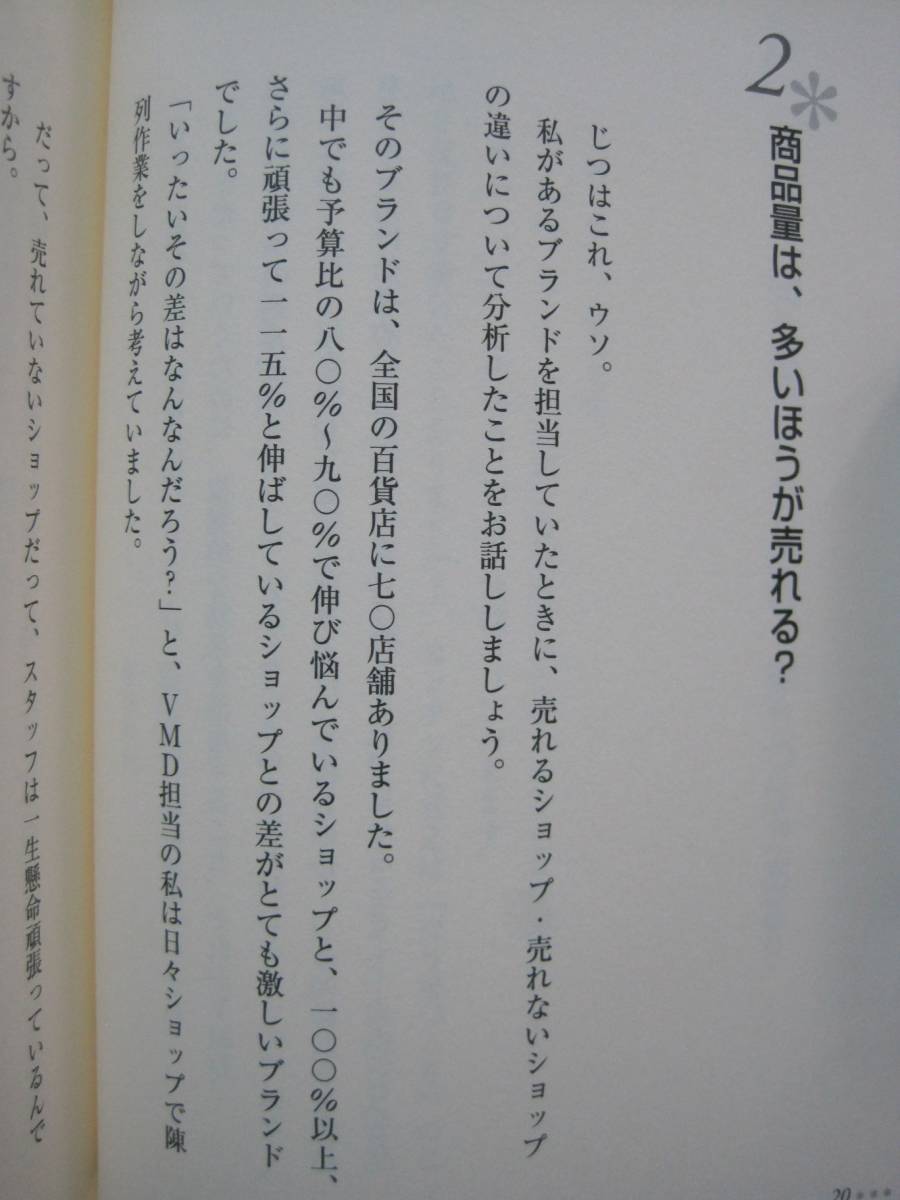 2*
商品量は、多いほうが売れる?
じつはこれ、ウソ。
私があるブランドを担当していたときに、売れるショップ・売れないショップ
の違いについて分析したことをお話ししましょう。
そのブランドは、全国の百貨店に七〇店舗ありました。
中でも予算比の八〇%〜九〇%で伸び悩んでいるショップと、一〇〇%以上、
さらに頑張って一一五%と伸ばしているショップとの差がとても激しいブランド
でした。
「いったいその差はなんなんだろう?」と、VMD担当の私は日々ショップで陳
列作業をしながら考えていました。
だって、売れていないショップだって、スタッフは一生懸命頑張っているんで
すから。
20***